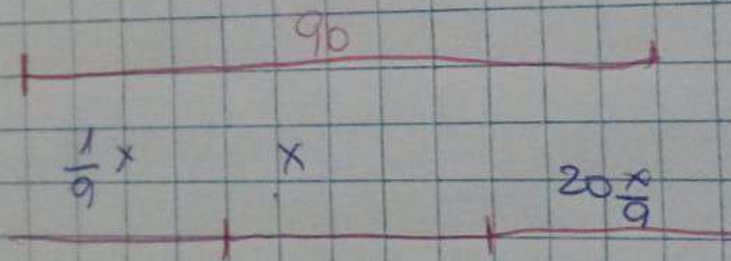 90
1/9 x x 20 x/9